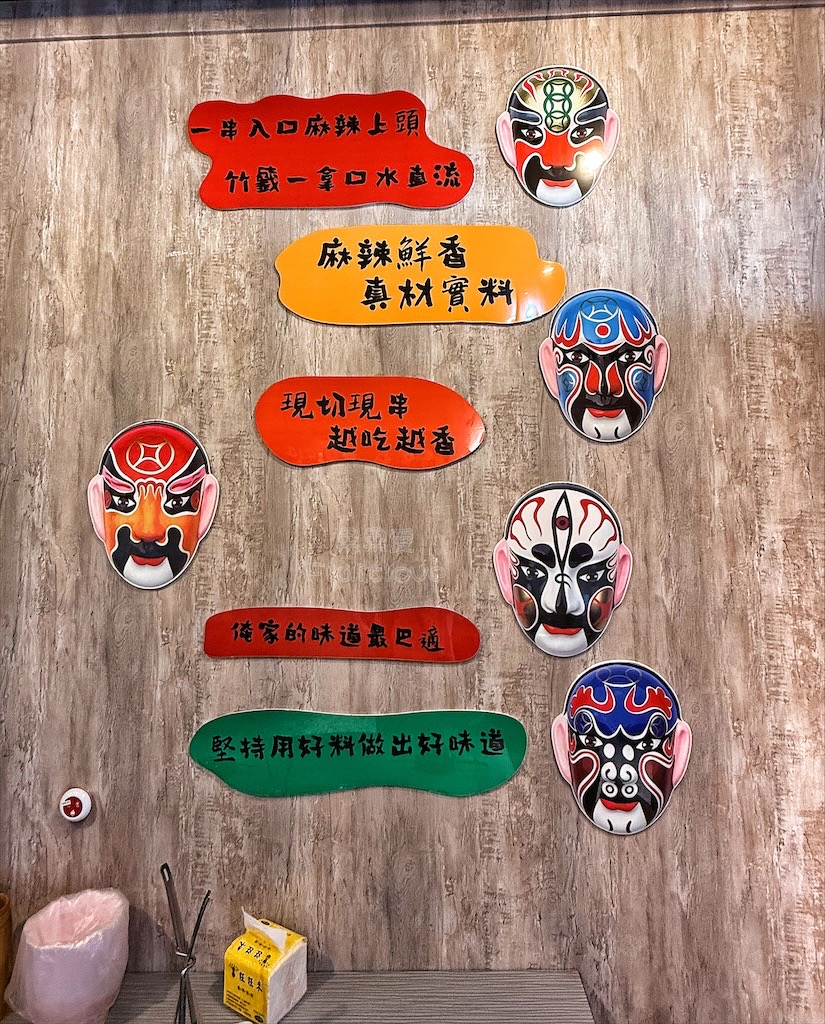 一串入口麻辣上頭
竹籤一拿口水直流
麻辣鮮香
真材實料
現切現串
越吃越香
俺家的味道最巴適
堅持用好料做出好味道